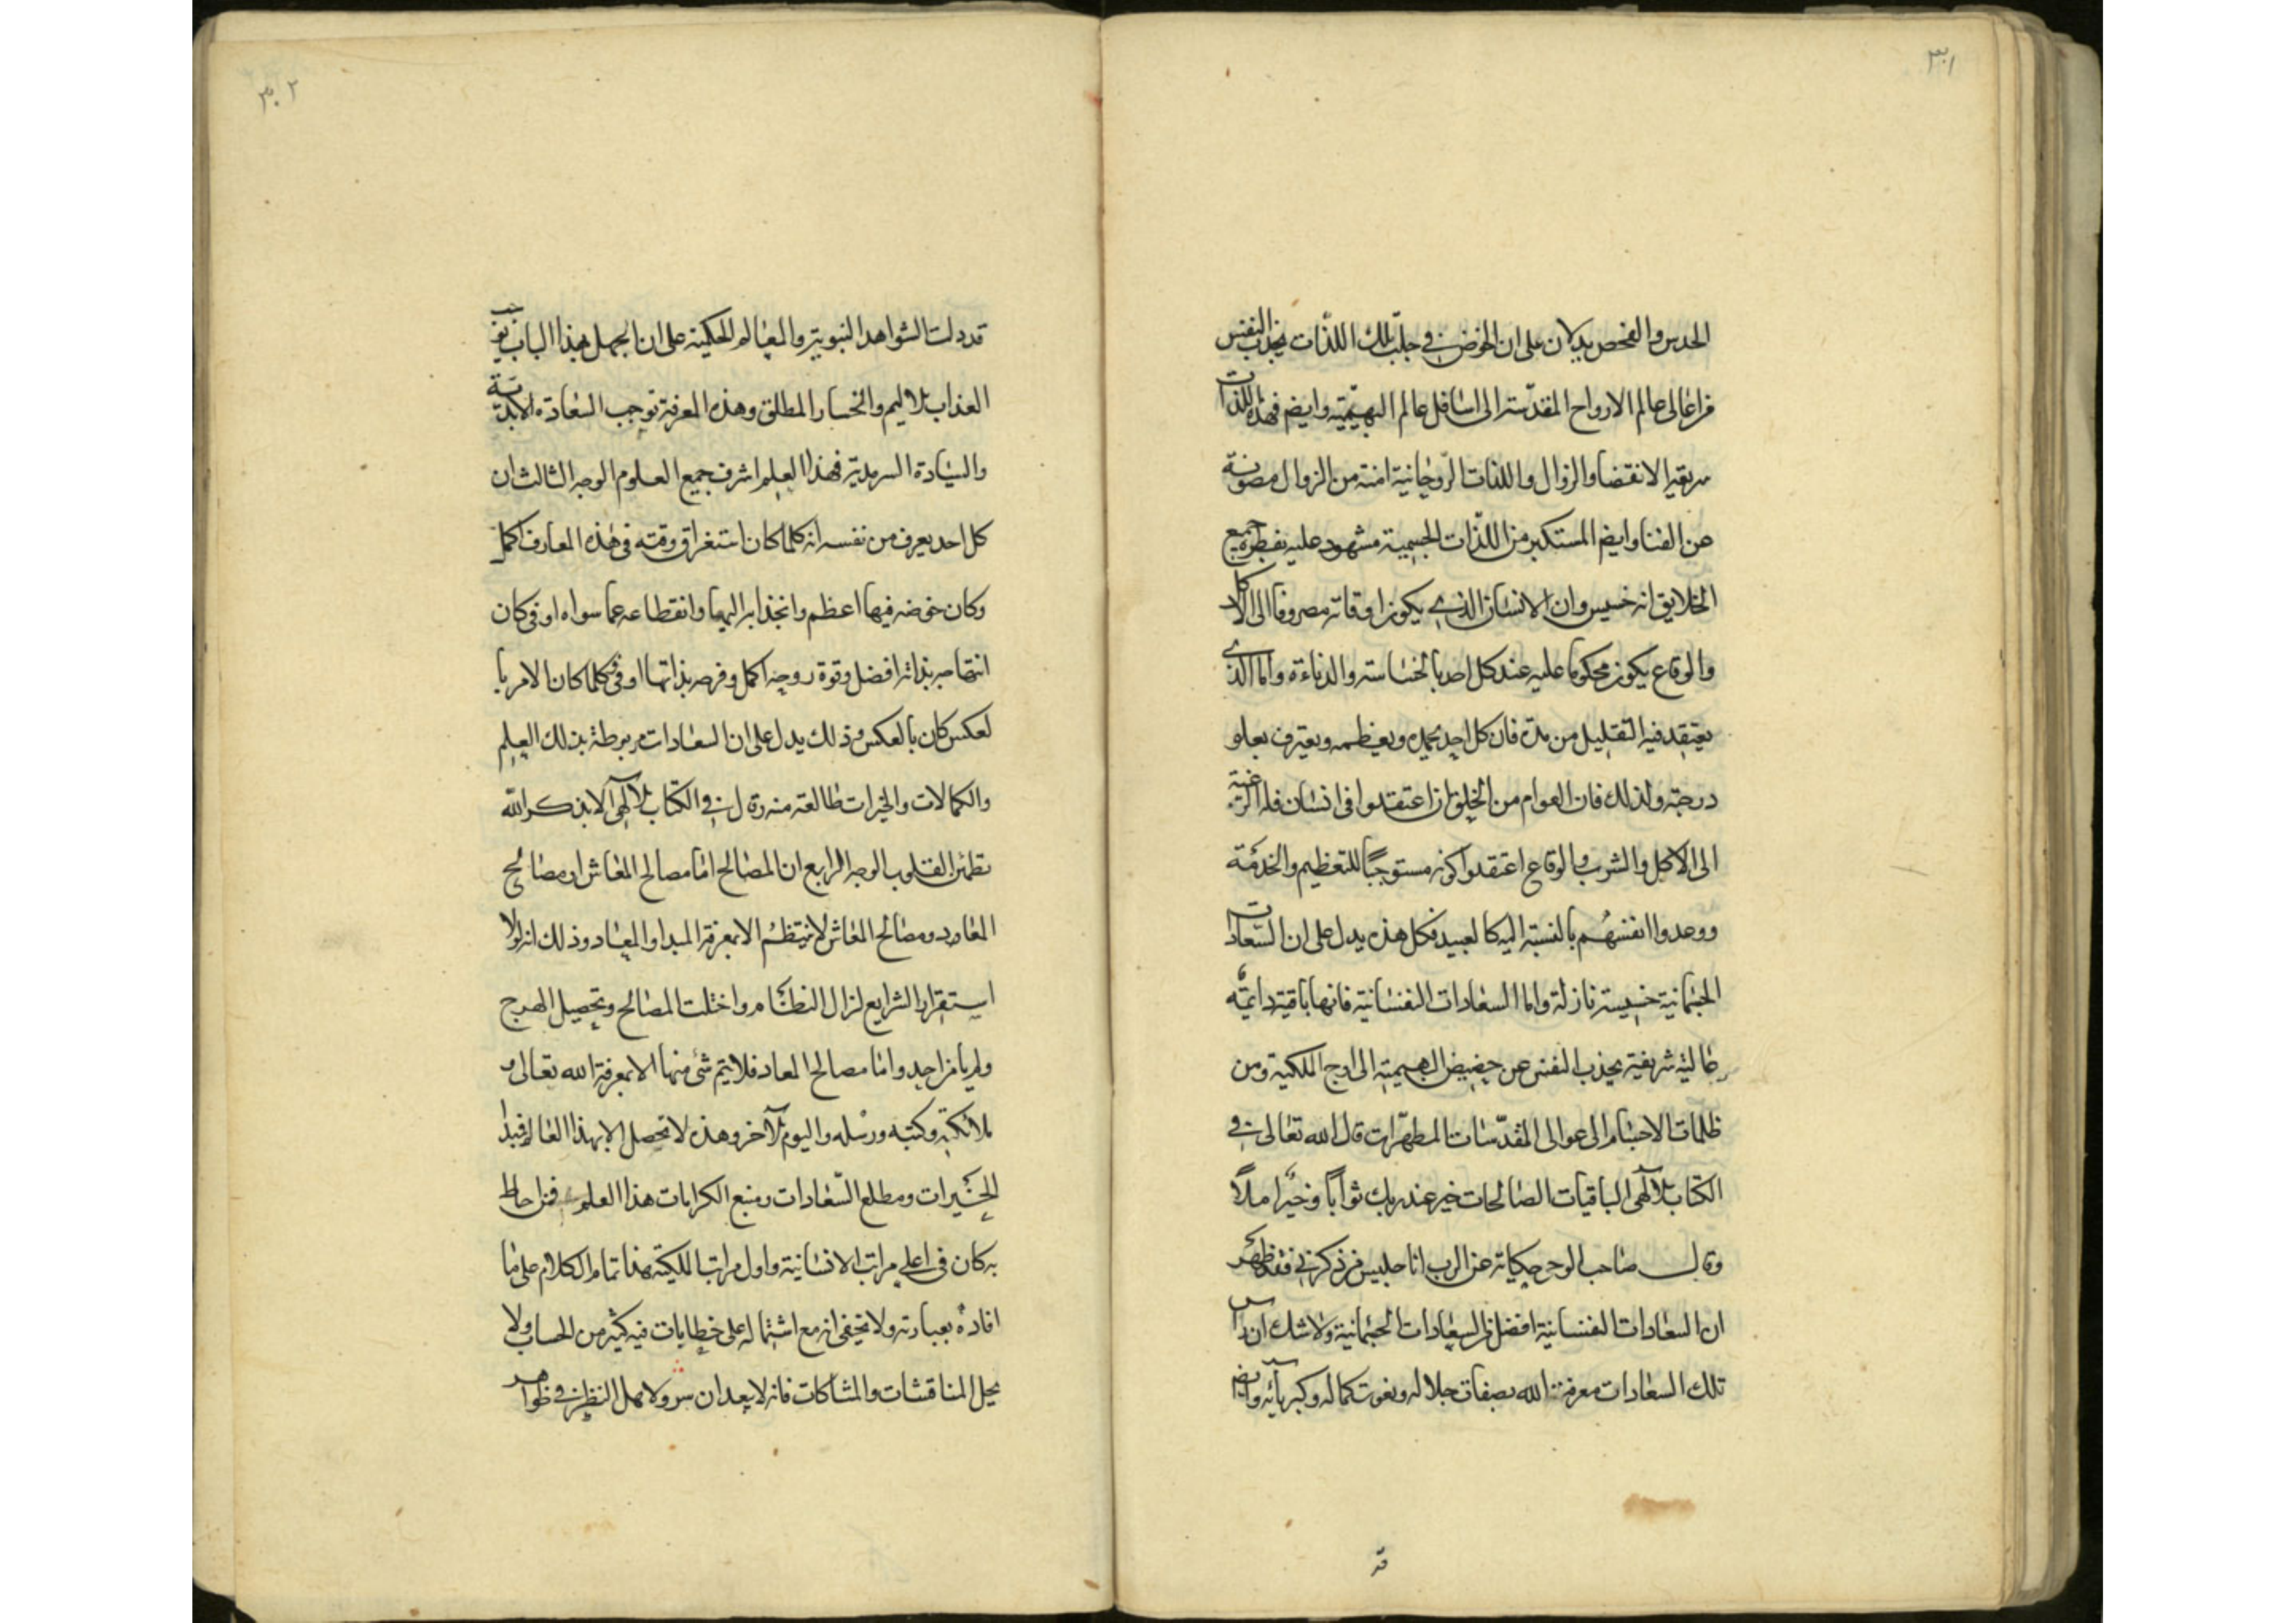 ٣٠١
الحدس والفحص يدلان على ان الخوض في جلب تلك اللذات يجذب النفس
من اعالى عالم الارواح المقدّسة الى اسافل عالم البهيميّة وايضم فهذه اللذات
سريعة الانقضا والزوال واللذات الرّوحانية امنة من الزوال مصونة
عن الفنا وايضم المستكبر من اللذّات الجسمية مشهود عليه بفطرة جميع
الخلايق انه خسيس وان الانسان الذى يكون اوقاته مصروفا الى الاكل
والوقاع يكون محكوما عليه عند كل احد بالخساسة والدناءة واما الذى
يعتقد فيه التقليل من هذه فان كل احد يحمده ويعظمه ويعترف بعلو
درجته ولذلك فان العوام من الخلق ان اعتقدوا فى انسان قلة الرغبة
الى الاكل والشرب والوقاع اعتقدوا كونه مستوجبًا للتعظيم والخدمة
ووعدوا انفسهم بالنسبة اليه كالعبيد فكل هذه يدل على ان السّعادات
الجسمانية خسيسة نازلة واما السعادات النفسانية فانها باقية دايمة
عالية شريفة يجذب النفس عن حضيض البهيمية الى اوج الملكية ومن
ظلمات الاجسام الى عوالى المقدّسات المطهّرات قال الله تعالى فى
الكتاب الآلهى الباقيات الصالحات خير عند ربك ثوابًا وخيرٌ املًا
وقال صاحب الوحى حكاية عن الرب انا جليس من ذكرنى فقد ظهر
ان السعادات النفسانية افضل من السعادات الجسمانية ولا شك ان راس
تلك السعادات معرفة الله بصفات جلاله ونعوت كماله وكبريآئه وايضم
قد
٣٠٢
قد دلت الشواهد النبوية والمعالم الحكمية على ان الجهل بهذا الباب يوجب
العذاب الاليم والخسار المطلق وهذه المعرفة توجب السعادة الابديّة
والسّيادة السرمدية فهذا العلم اشرف جميع العلوم الوجه الثالث ان
كل احد يعرف من نفسه انه كلما كان استغراق وقته فى هذه المعارف اكمل
وكان خوضه فيها اعظم وانجذابه اليها وانقطاعه عما سواه اوفى كان
ابتهاجه بذاته افضل وقوة روحه اكمل وفرحه بذاتها اوفى وكلما كان الامر با
لعكس كان بالعكس وذلك يدل على ان السعادات مربوطة بذلك العلم
والكمالات والخيرات طالعة منه قال فى الكتاب الآلهى الا بذكر الله
تطمئن القلوب الوجه الرابع ان المصالح امّا مصالح المعاش او مصالح
المعاد ومصالح المعاش لا ينتظم الا بمعرفة المبدا والمعاد وذلك انه لولا
استقرار الشرايع لزال النظام واختلت المصالح وتحصيل الهرج
ولم يامن احد وامّا مصالح المعاد فلا يتم شئ منها الا بمعرفة الله تعالى و
ملائكته وكتبه ورسله واليوم الآخر وهذه لا تحصل الا بهذا العالم فمبدا
الخيرات ومطلع السّعادات ومنبع الكرامات هذا العلم فمن احاط
به كان فى اعلى مراتب الانسانية واول مراتب الملكية هذا تمام الكلام على ما
افاده بعبارته ولا تخفى انه مع اشتماله على خطابيات فيه كثير من الحساب ولا
يحل المناقشات والمشاكات فانه لا يبعد ان ولا النظر فى ظواهر